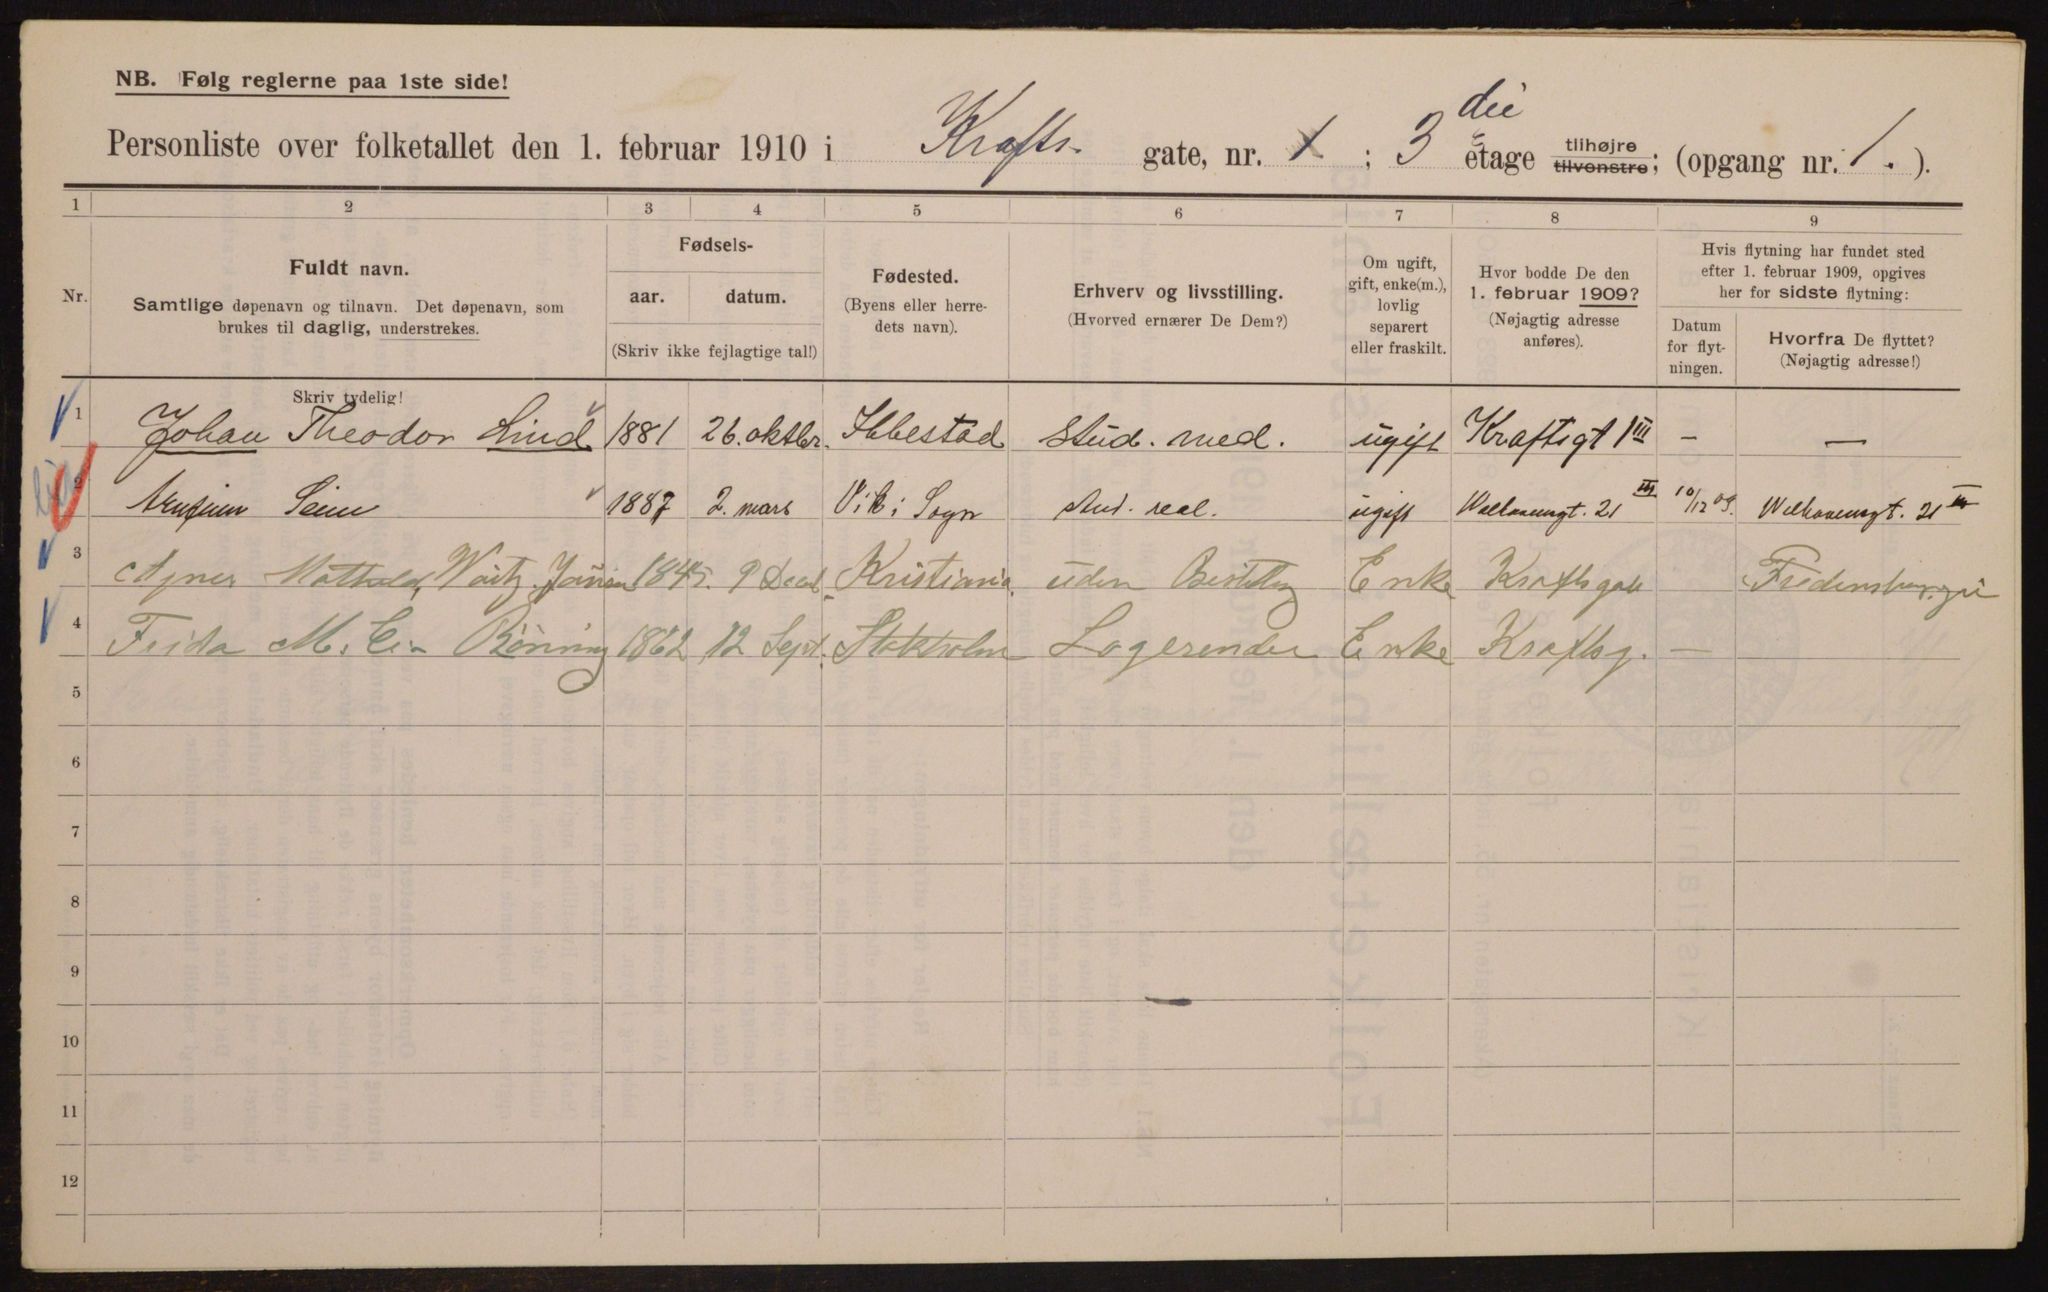 NB. Følg reglerne paa 1ste side!
Personliste over folketallet den 1. februar 1910 i Krafts- gate, nr. 1 ; 3 die etage tilhøjre tilvenstre; (opgang nr. 1. ).
1 2 3 4 5 6 7 8 9
Nr.
Fuldt navn.
Samtlige døpenavn og tilnavn. Det døpenavn, som
brukes til daglig, understrekes.
Skriv tydelig!
Fødsels-
aar. datum.
(Skriv ikke fejlagtige tal!)
Fødested.
(Byens eller herre-
dets navn).
Erhverv og livsstilling.
(Hvorved ernærer De Dem?)
Om ugift,
gift, enke(m.),
lovlig
separert
eller fraskilt.
Hvor bodde De den
1. februar 1909?
(Nøjagtig adresse
anføres).
Hvis flytning har fundet sted
efter 1. februar 1909, opgives
her for sidste flytning:
Datum
for flyt-
ningen.
Hvorfra De flyttet?
(Nøjagtig adresse!)
1 Johan Theodor Lind 1881 26. oktbr. Ibbestad stud. med. ugift Kraftsgt 1 III — —
2 Seim 1887 2. mars Vik i Sogn stud. real. ugift Welhavensgt. 21 III 10/12 09. Welhavensgt. 21 III
3 Agnes Mathilde 1845. 9 Kristiania. uden Enke Kraftsgade
4 Frida M. Rönning 1862 12 Sept. Stokholm Logerende Enke Kraftsg. —
5
6
7
8
9
10
11
12